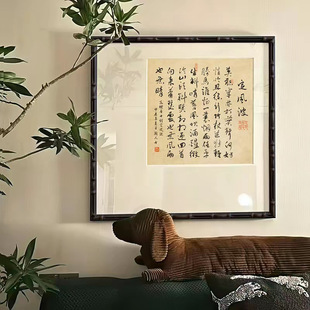 定風波
莫聽穿林打葉聲何妨
吟嘯且徐行竹杖芒鞋輕
勝馬誰怕一蓑煙雨任平
生料峭春風吹酒醒微冷
山頭斜照卻相迎回首
向來蕭瑟處歸去也無風雨
也無晴